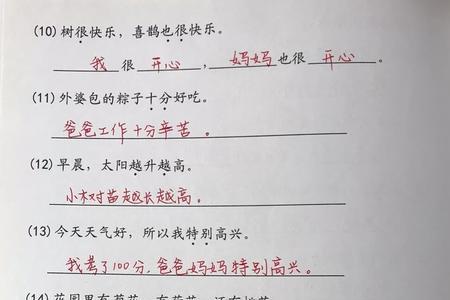 (10) 树很快乐，喜鹊也很快乐。
我 很 开心 ，妈妈 也很 开心 。
(11) 外婆包的粽子十分好吃。
爸爸工作十分辛苦。
(12) 早晨，太阳越升越高。
小树苗越长越高。
(13) 今天天气好，所以我特别高兴。
我考了100分，爸爸妈妈特别高兴。
(14) 花园里有菊花，有